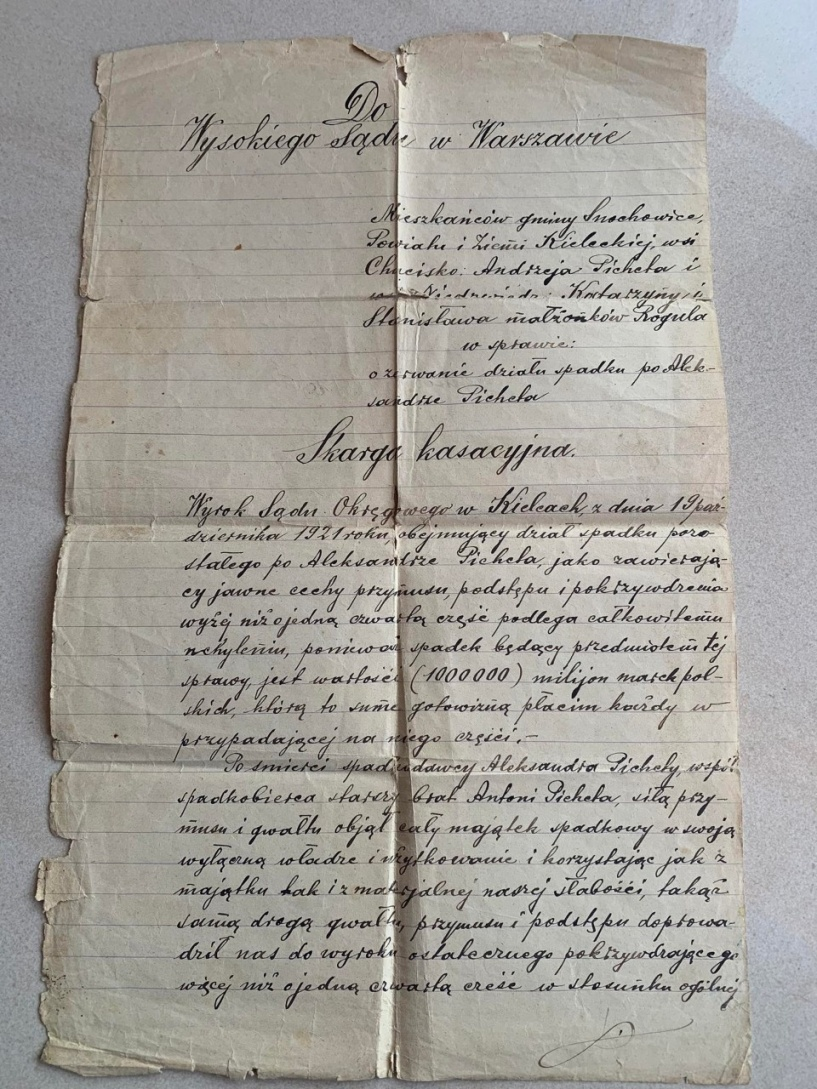 Do
Wysokiego Sądu w Warszawie
Mieszkańców gminy Snochowice,
Powiatu i Ziemi Kieleckiej, wsi
Chucisko: Andrzeja Picheta i
Katarzyny i
Stanisława małżonków Rogula
w sprawie:
o zerwanie działu spadku po Alek-
sandrze Picheta
Skarga kasacyjna.
Wyrok Sądu Okręgowego w Kielcach, z dnia 19 paź-
dziernika 1921 roku, obejmujący dział spadku pozo
stałego po Aleksandrze Picheta, jako zawierają-
cy jawne cechy przymusu, podstępu i pokrzywdzenia
wyżej niż o jedną czwartą część podlega całkowitemu
uchyleniu, ponieważ spadek będący przedmiotem tej
sprawy, jest wartości (1000000) milijon marek pol-
skich, którą to sumę gotowizną płacim każdy w
przypadającej na niego części.-
Po śmierci spadkodawcy Aleksandra Pichety, współ
spadkobierca starszy brat Antoni Picheta, siłą przy-
musu i gwałtu objął cały majątek spadkowy w swoją
wyłączną władze i użytkowanie i korzystając jak z
majątku tak i z materjalnej naszej słabości, takąż
samą drogą gwałtu, przymusu i podstępu doprowa-
dził nas do wyroku ostatecznego pokrzywdzającego
więcej niż o jedną czwartą cześć w stosuńku ogólnej